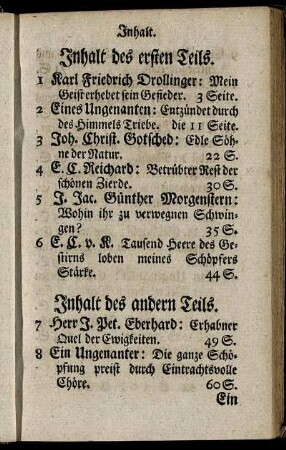 Inhalt.
Inhalt des ersten Teils.
1 Karl Friedrich Drollinger: Mein
Geist erhebet sein Gefieder. 3 Seite.
2 Eines Ungenanten: Entzündet durch
des Himmels Triebe. die 11 Seite.
3 Joh. Christ. Gotsched: Edle Söh-
ne der Natur. 22 S.
4 E. C. Reichard: Betrübter Rest der
schönen Zierde. 30 S.
5 J. Jac. Günther Morgenstern:
Wohin ihr zu verwegnen Schwin-
gen? 35 S.
6 E. C. v. K. Tausend Heere des Ge-
stirns loben meines Schöpfers
Stärke. 44 S.
Inhalt des andern Teils.
7 Herr J. Pet. Eberhard: Erhabner
Quel der Ewigkeiten. 49 S.
8 Ein Ungenanter: Die ganze Schö-
pfung preist durch Eintrachtsvolle
Chöre. 60 S.
Ein